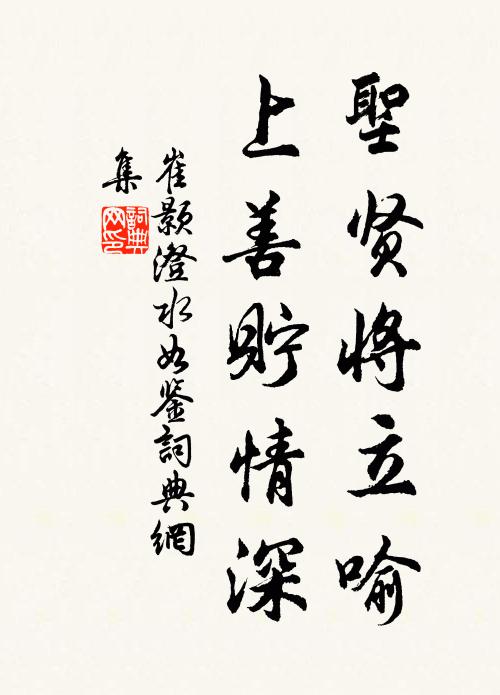 聖贤將立喻
上善貯情深
崔顥澄水如鉴詞典網
集
詞典
网印